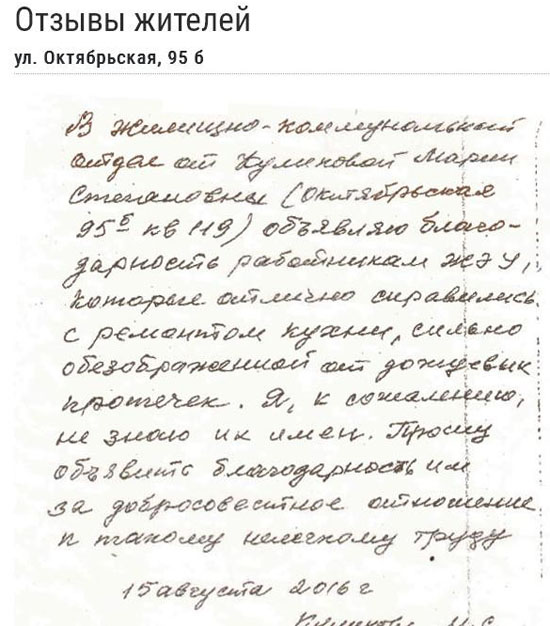 Отзывы жителей
ул. Октябрьская, 95 б
В жилищно-коммунальный
отдел от Куликовой Марии
Степановны (Октябрьская
95б кв 119) объявляю благо-
дарность работникам ЖЭУ,
которые отлично справились
с ремонтом кухни, сильно
обезображенной от дождевых
протечек. Я, к сожалению,
не знаю их имен. Прошу
объявить благодарность им
за добросовестное отношение
к такому нелегкому труду
15 августа 2016 г